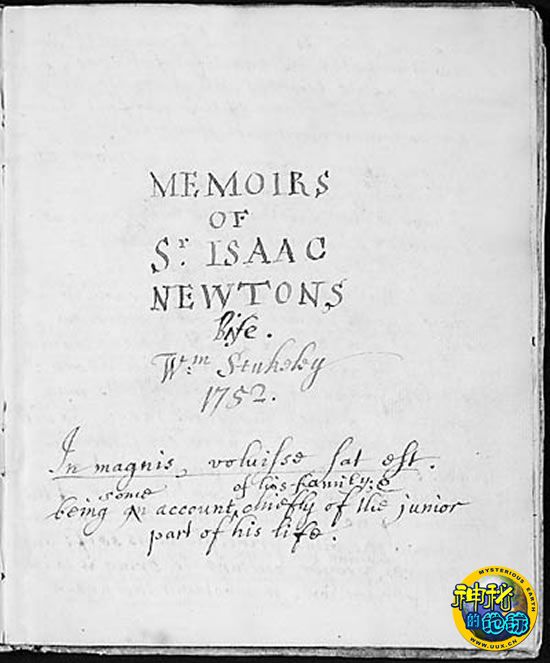 MEMOIRS
OF
Sr. ISAAC
NEWTONS
life.
Wm. Stukeley
1752.
In magnis, voluisse sat est.
some of his family: &
being an account, chiefly of the junior
part of his life.
MYSTERIOUS EARTH
神秘
的地球
WWW.UUX.CN